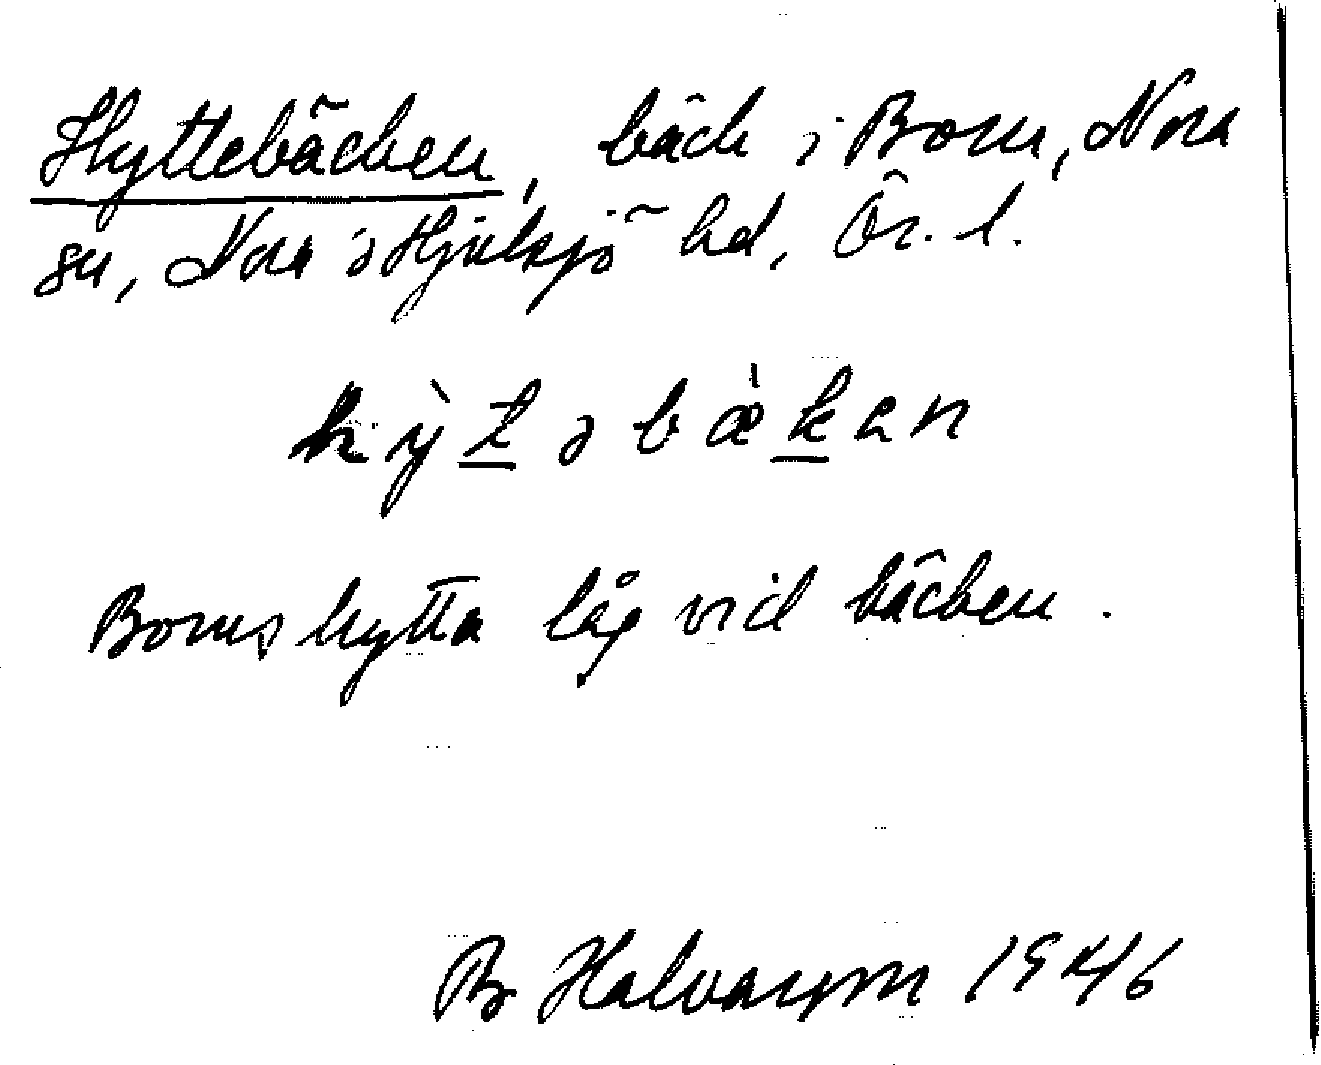 Hyttebäcken, bäck i Born, Nora
sn, Nora o Hjulsjö hd, Ör. l.
hỳt̲əbæ̀k̲an
Bornshytta låg vid bäcken.
B Halvarson 1946